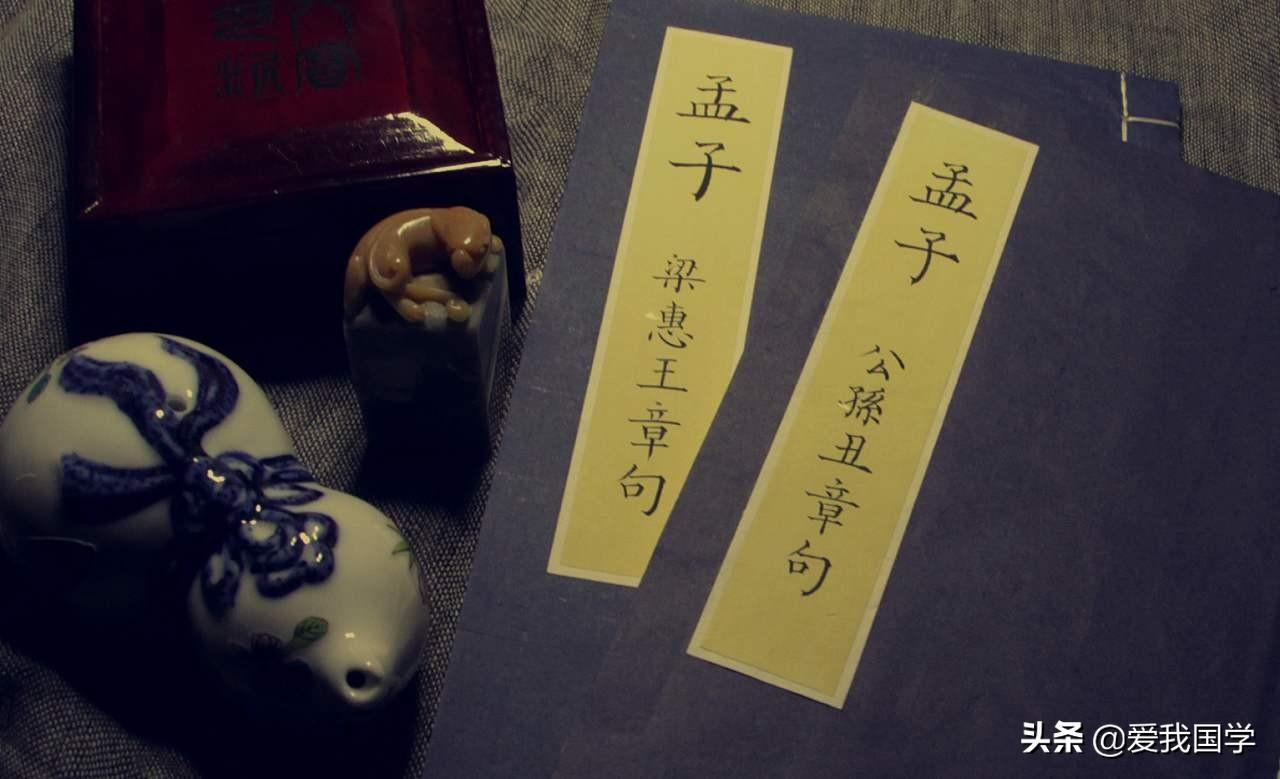 孟子 梁惠王章句
孟子 公孫丑章句
头条 @爱我国学